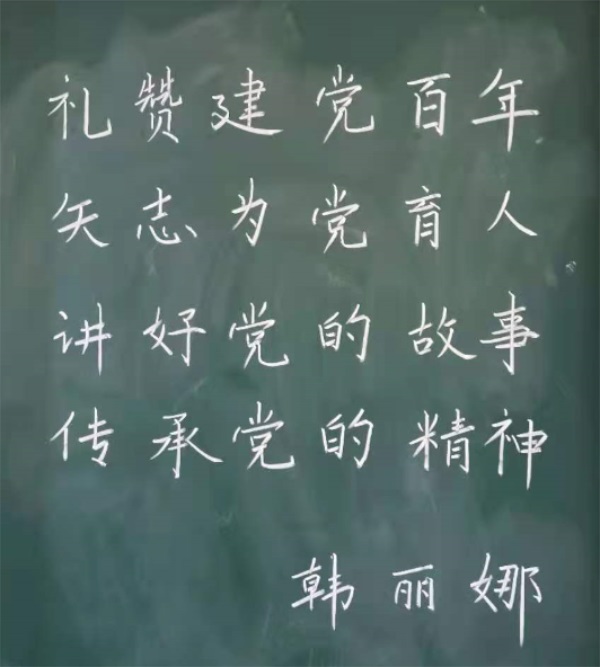 礼赞建党百年
矢志为党育人
讲好党的故事
传承党的精神
韩丽娜